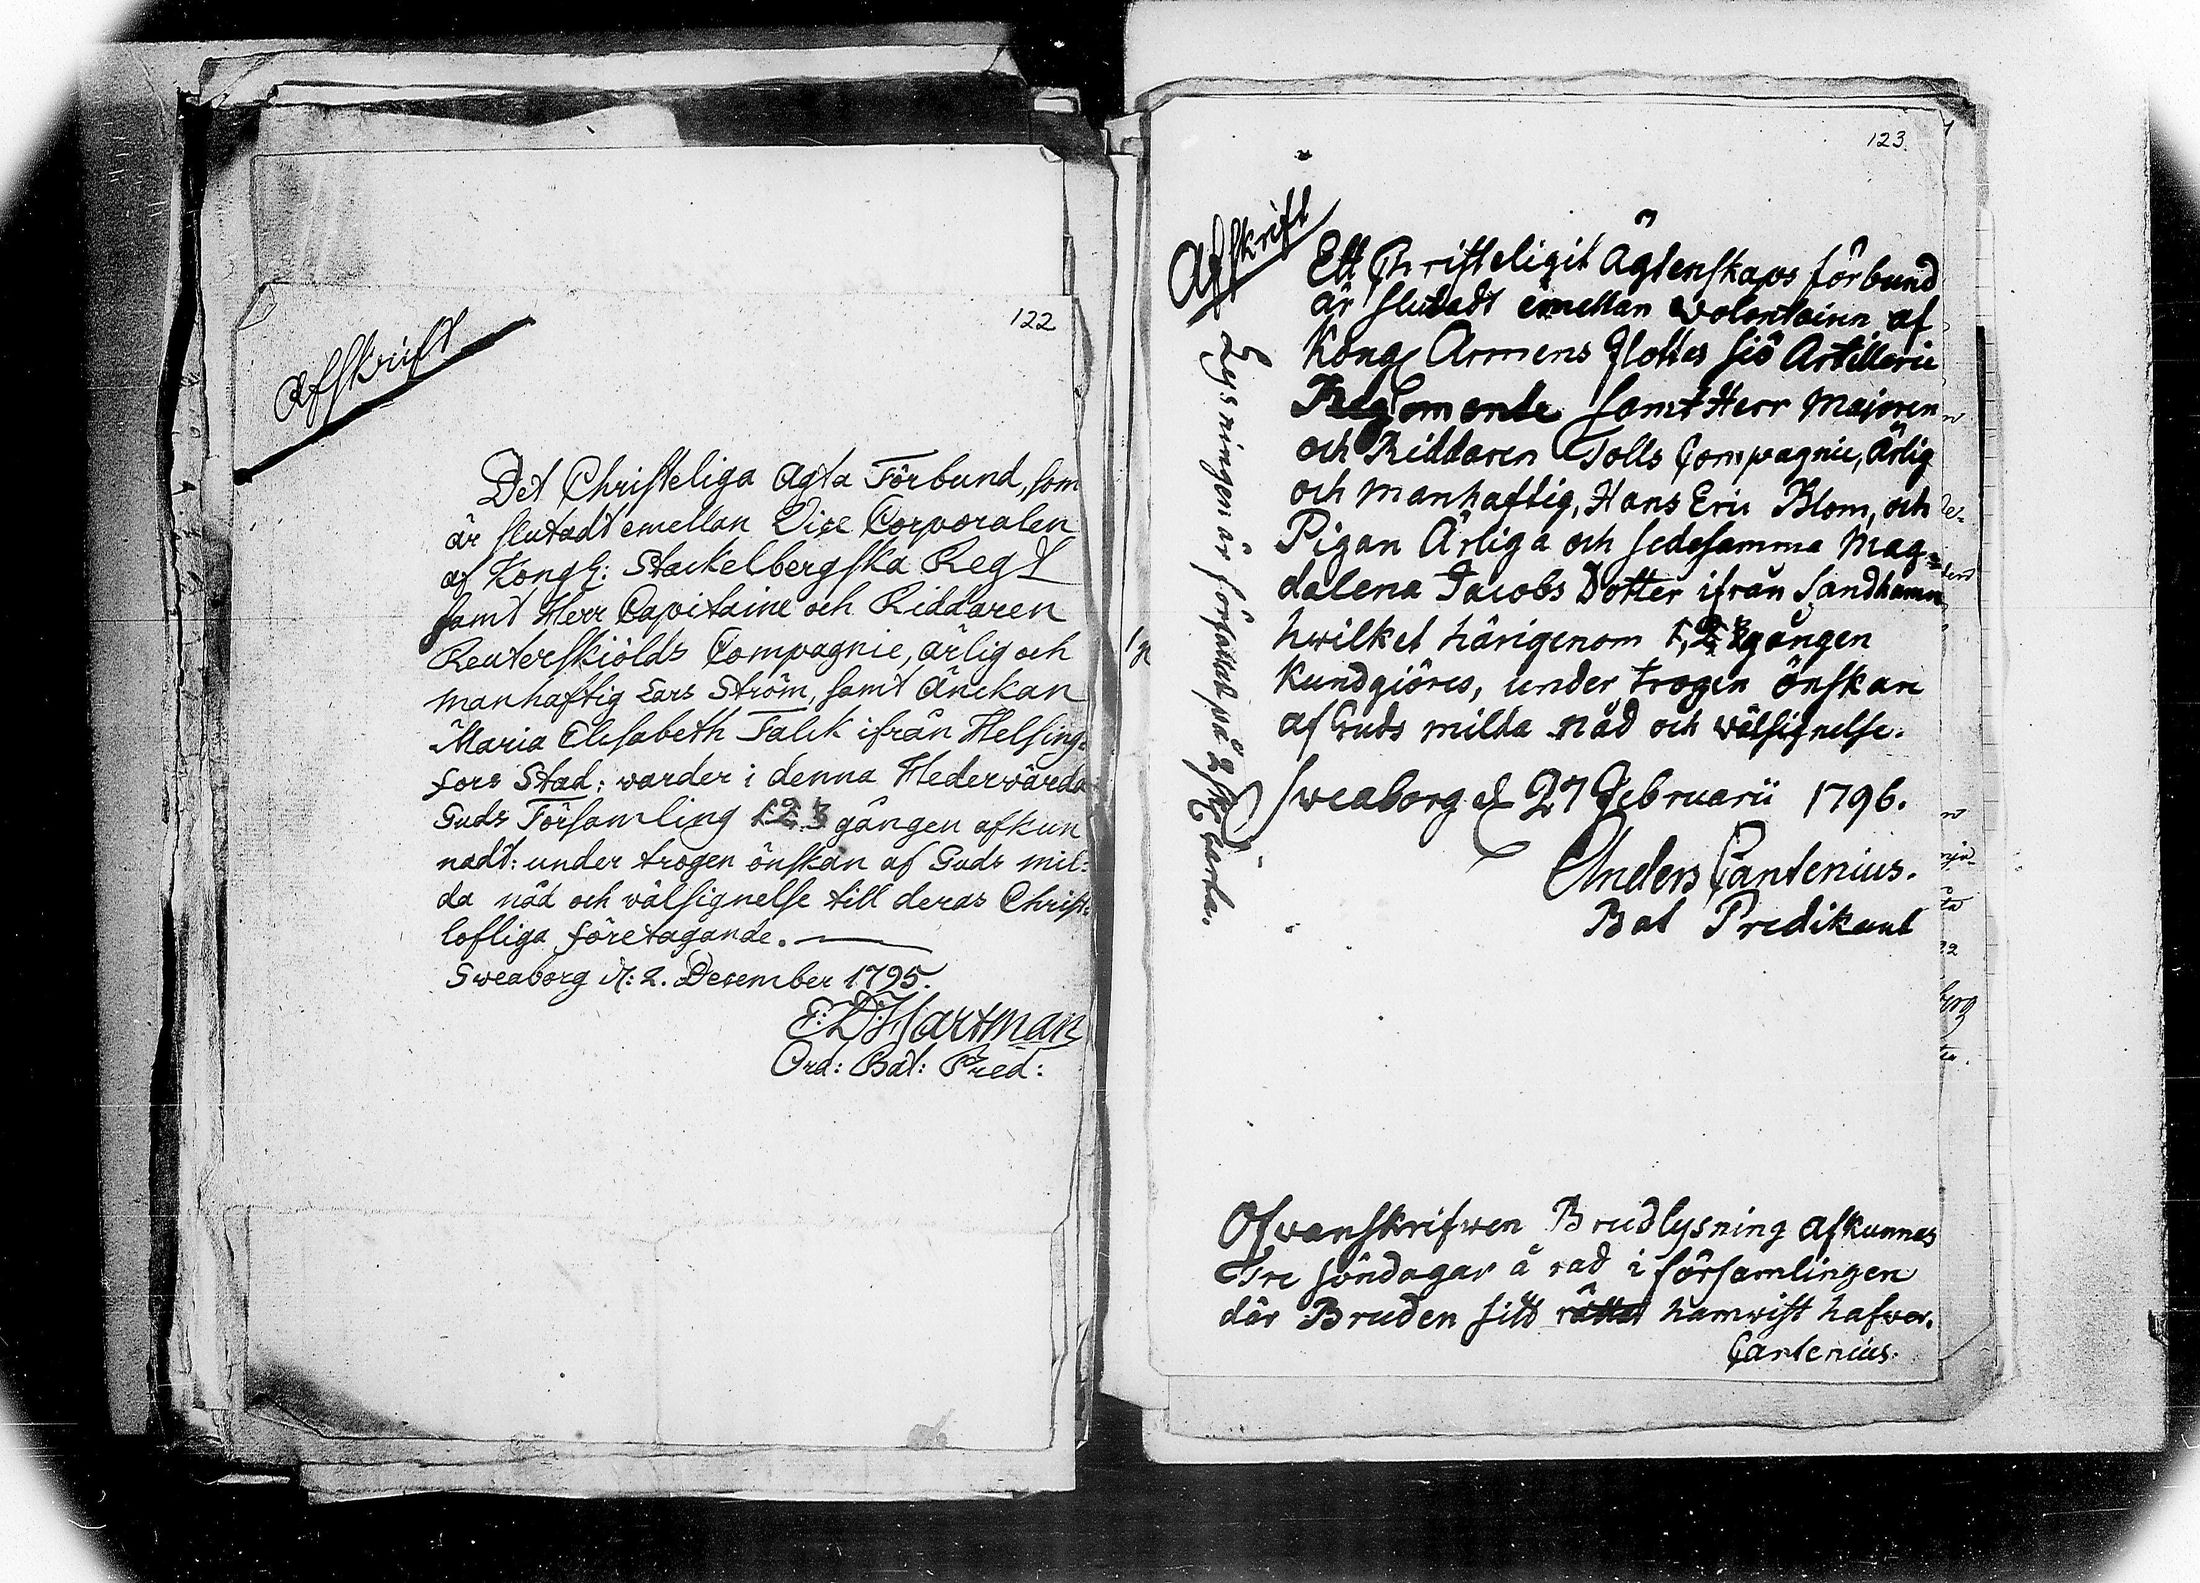 122
Afskrift
Det Christeliga Agta Förbund, som
är slutadt emellan Vice Corporalen
af Kongl: Stackelbergska Regt
samt Herr Capitaine och Riddaren
Reuterskiölds Compagnie, ärlig och
manhaftig Lars Ström, samt Änckan
Maria Elisabeth Falck ifrån Helsing-
fors Stad: warder i denna Hedervärda
Guds Församling 1. 2. 3 gången afkun
nadt: under trogen önskan af Guds mil-
da nåd och välsignelse till deras Christ-
lofliga företagande.
Sweaborg d: 2. December 1795.
E: D: Hartman
Ord: Bat: Pred:
123.
Afskrift
Ett Christeligit Ägtenskaps förbund
är slutadt emellan Volontairen af
Kongl Armens Flottes siö Artillerie
Regemente samt Herr Majoren
och Riddaren Tolls Compagnie, Ärlig
och manhaftig, Hans Eric Blom, och
Pigan Ärliga och sedesamma Mag-
dalena Jacobs Dotter ifrån Sandhamn
hwilket härigenom 1, 2, 3 gången
kundgiöres, under trogen önskan
af Guds milda nåd och wälsignelse.
Sweaborg d 27 Februarii 1796.
Anders Cantenius.
Bat Predikant
Lysningen är författad på 2 sk Charta.
Ofvanskrifwen Brudlysning afkunnas
Tre söndagar å rad i församlingen
där Bruden sitt rätta hamwist hafwer.
Cantenius.